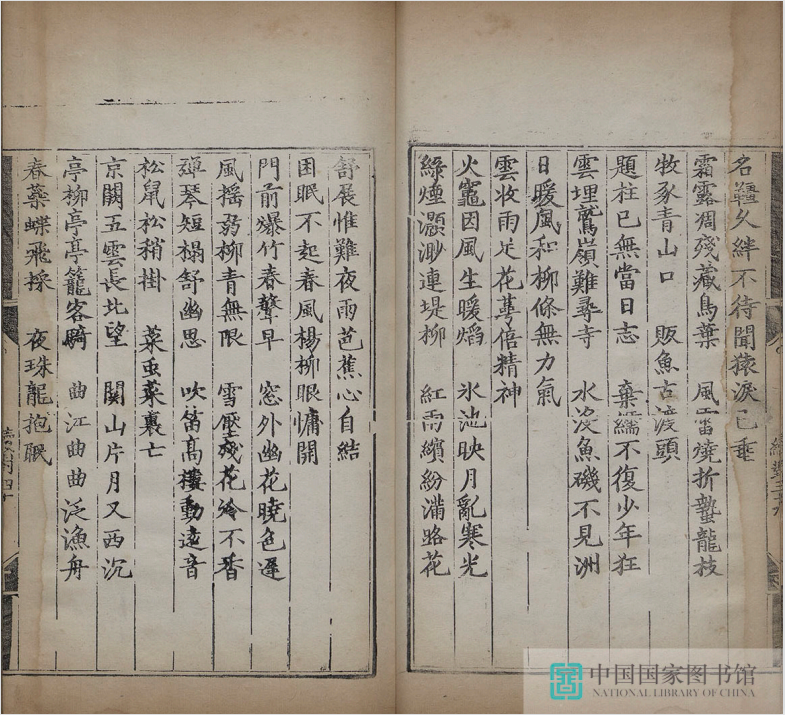 名韁久絆不待聞猿淚已垂
霜露凋殘藏鳥葉　風雷燒折蟄龍枝
牧豕青山口　販魚古渡頭
題柱已無當日志　棄繻不復少年狂
雲埋鷲嶺難尋寺　水沒魚磯不見洲
日暖風和柳條無力氣
雲收雨足花萼倍精神
火竈因風生暖焰　氷池映月亂寒光
綠煙灝渺連堤柳　紅雨繽紛滿路花
舒展惟難夜雨芭蕉心自結
困眠不起春風楊柳眼慵開
門前爆竹春聲早　窓外幽花曉色遲
風搖弱柳青無限　雪壓殘花冷不香
彈琴短榻舒幽思　吹笛高樓動遠音
松鼠松稍掛　菜虫菜裹亡
京闕五雲長北望　關山片月又西沉
亭柳亭亭籠客騎　曲江曲曲泛漁舟
春蘂蝶飛採　夜珠龍抱眠
中国国家图书馆
NATIONAL LIBRARY OF CHINA